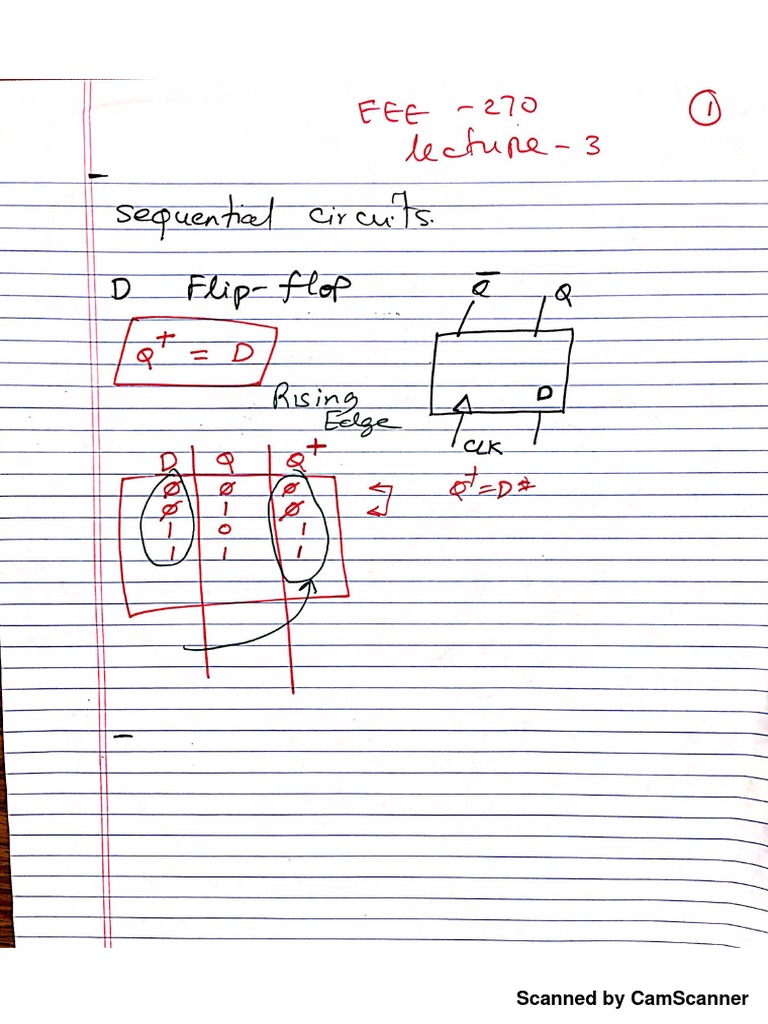 EEE - 270
①
Lecture - 3
Sequential circuits.
D Flip-flop
Q̅ Q
Q⁺ = D
D
Rising
Edge
CLK
D Q Q⁺
Q⁺ = D
0 0 0
0 1 0
1 0 1
1 1 1
Scanned by CamScanner